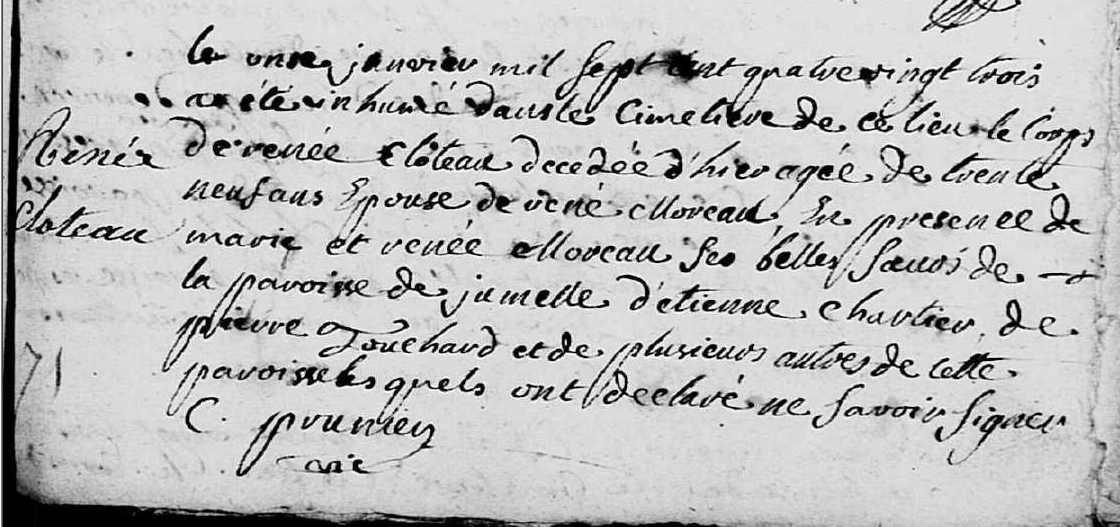 le onze janvier mil sept cent quatre vingt trois
a été inhumé dans le Cimetiere de ce lieu le Corps
Renée
de renée Cloteau decedée d'hier agée de trente
neuf ans Epouse de rené Moreau, En presence de
Cloteau
marie et renée Moreau ses belles sœurs de
la paroisse de jumelle d'etienne Chartier, de
pierre Touchard et de plusieurs autres de cette
71
paroisse les quels ont declaré ne savoir signer
C. prunier
vic